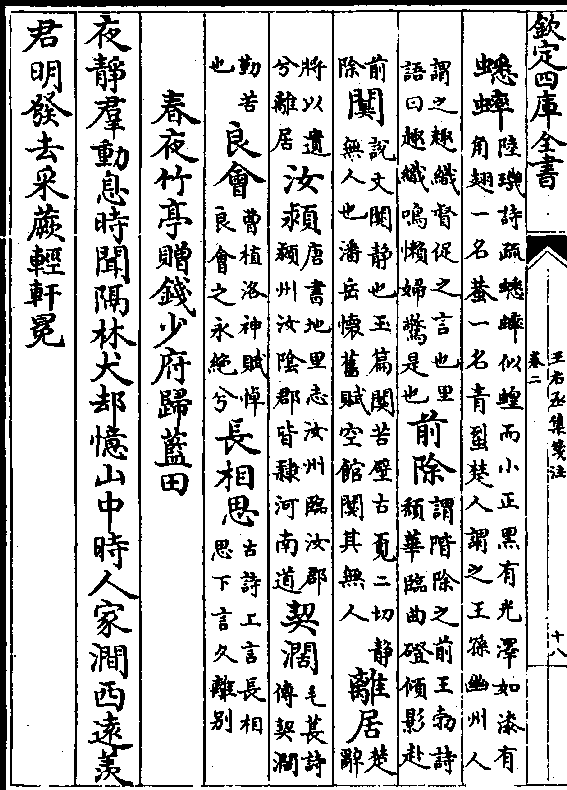 欽定四庫全書
王右丞集箋注
卷二
十八
蟋蟀陸璣詩疏蟋蟀似蝗而小正黑有光澤如漆有角翅一名蛬一名青蛩楚人謂之王孫幽州人
謂之趣織督促之言也里語曰趣織鳴懶婦驚是也前除謂階除之前王勃詩頹華臨曲磴傾影赴
前除闃說文闃静也玉篇闃苦壁古覓二切静無人也潘岳懷舊賦空館闃其無人離居楚辭
將以遺兮離居汝潁唐書地里志汝州臨汝郡潁州汝陰郡皆隸河南道契濶毛萇詩傳契濶
勤苦也良會曹植洛神賦悼良會之永絶兮長相思古詩上言長相思下言久離别
春夜竹亭贈錢少府歸藍田
夜靜羣動息時聞隔林犬却憶山中時人家澗西遠羨
君明發去采蕨輕軒冕